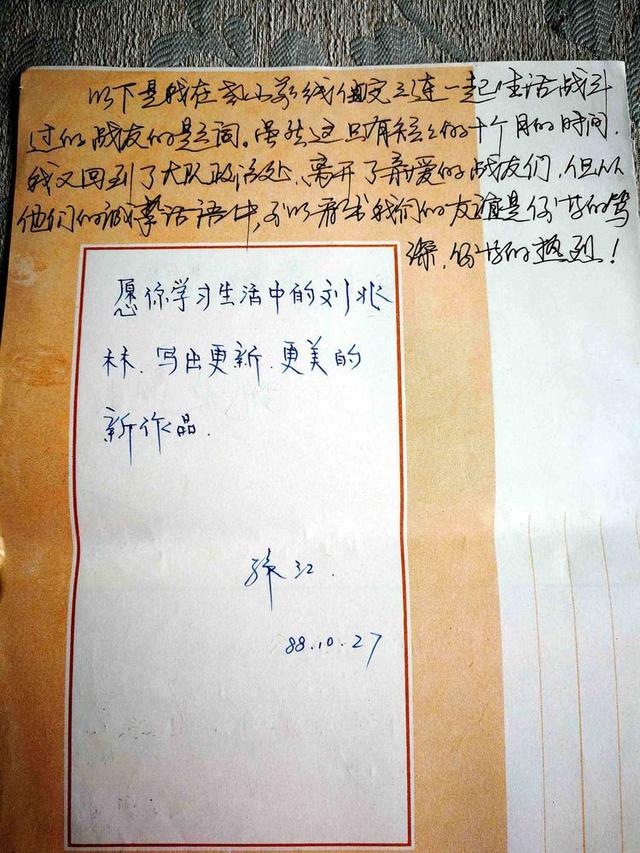 以下是我在老山前线侦察三连一起生活战斗
过的战友的题词。虽然这只有短短的十个月的时间,
我又回到了大队政治处、离开了亲爱的战友们,但从
他们的话语中,可以看出我们的友谊是何等的笃
深,何等的热烈!
愿你学习生活中的刘兆
林.写出更新.更美的
新作品.
江.
88.10.27